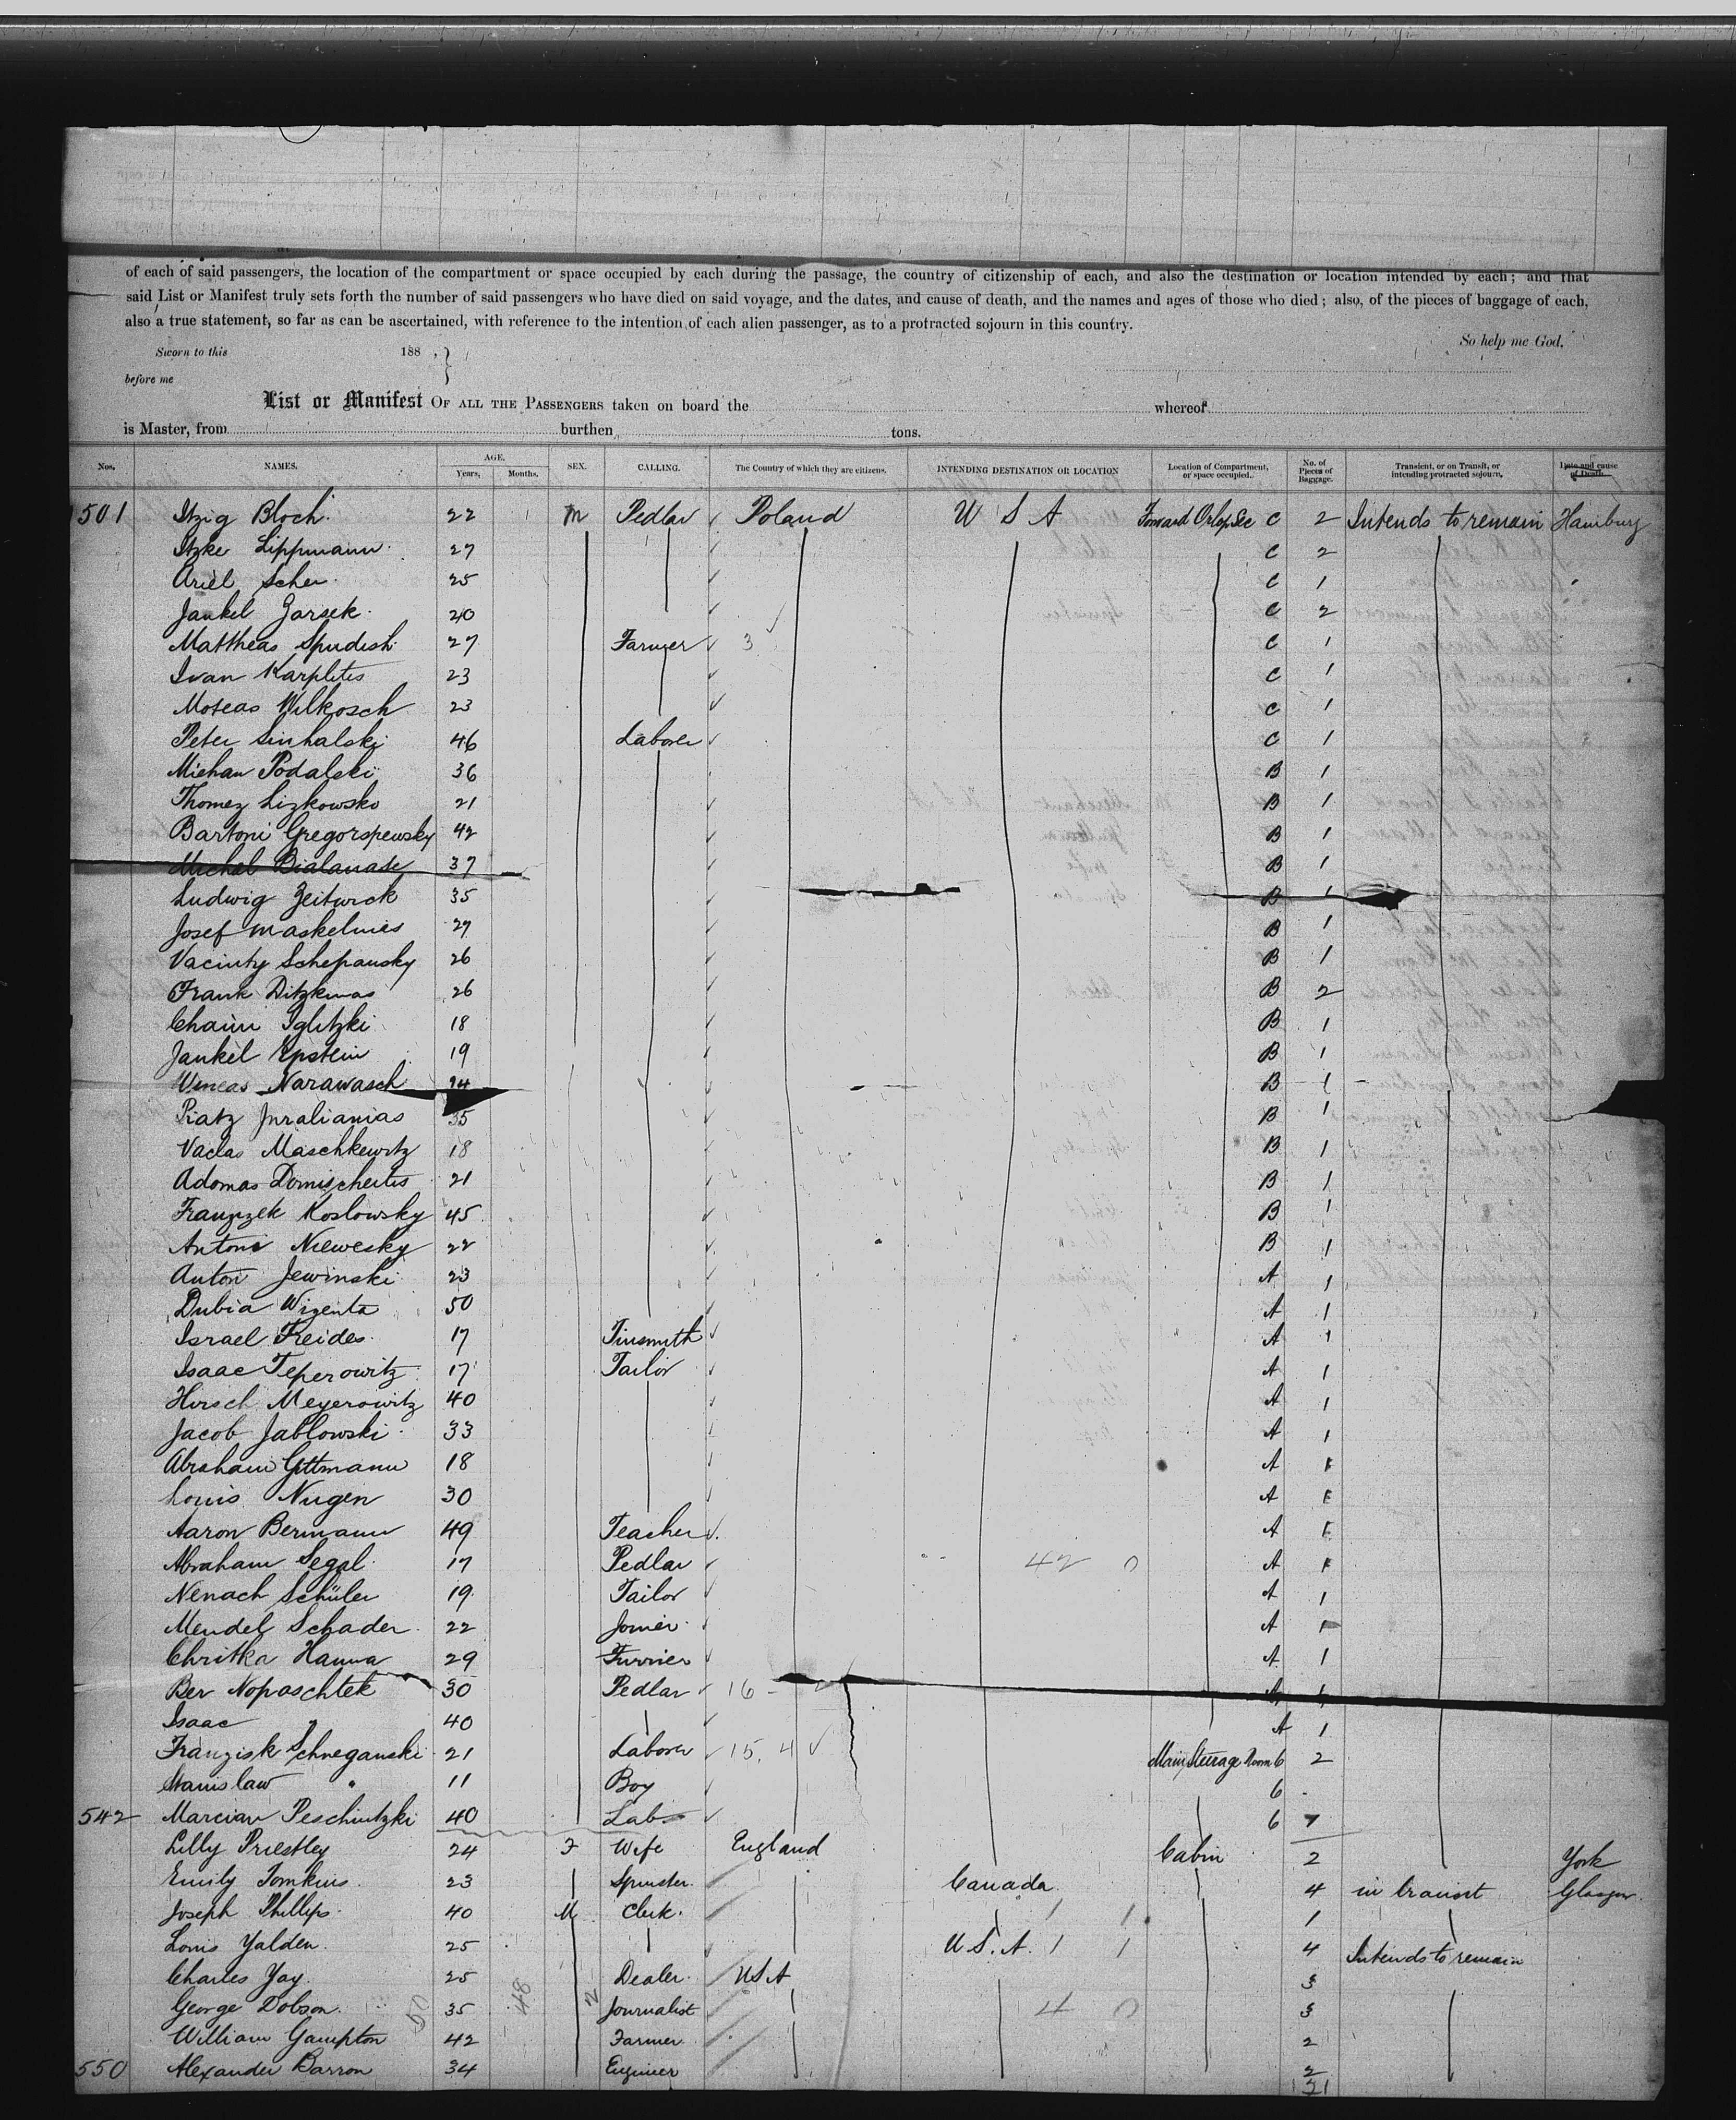 of each of said passengers, the location of the compartment or space occupied by each during the passage, the country of citizenship of each, and also the destination or location intended by each; and that
said List or Manifest truly sets forth the number of said passengers who have died on said voyage, and the dates, and cause of death, and the names and ages of those who died; also, of the pieces of baggage of each,
also a true statement, so far as can be ascertained, with reference to the intention of each alien passenger, as to a protracted sojourn in this country.
So help me God.
Sworn to this 188 , }
before me
List or Manifest OF ALL THE PASSENGERS taken on board the whereof
is Master, from burthen tons.
Nos. NAMES. AGE. Years. Months. SEX. CALLING. The Country of which they are citizens. INTENDING DESTINATION OR LOCATION Location of Compartment, or space occupied. No. of Pieces of Baggage. Transient, or on Transit, or intending protracted sojourn. Date and cause of Death.
501 Itzig Bloch 22 M Pedlar Poland U S A Forward Orlop Sec C 2 Intends to remain Hamburg
Itzke Lippmann 27 C 2
Ariel Scher 25 C 1
Jankel Zarsek 20 C 2
Mattheas Spudish 27 Farmer 3 C 1
Ivan Karplitis 23 C 1
Moteas Wilkosch 23 C 1
Peter Sinhalski 46 Laborer C 1
Michau Podalski 36 B 1
Thomez Lizkowsko 21 B 1
Bartoni Gregorspewsky 42 B 1
Michal Bialanase 37 B 1
Ludwig Zeitwick 35 B 1
Josef Maskelmies 27 B 1
Vacinty Schepansky 26 B 1
Frank Ditzkmas 26 B 2
Chaim Iglitzki 18 B 1
Jankel Epstein 19 B 1
Narawasch 24 B 1
Piatz Juralianias 35 B 1
Vaclas Maschkewitz 18 B 1
Adomas Domischeites 21 B 1
Franzzek Koslowsky 45 B 1
Antoni Niewesky 22 B 1
Anton Jewinski 23 A 1
Dubia Wizenta 50 A 1
Israel Freides 17 Tinsmith A 1
Isaac Teperowitz 17 Tailor A 1
Hirsch Meyerowitz 40 A 1
Jacob Jablowski 33 A 1
Abraham Gittmann 18 A 1
Louis Nugen 30 A 1
Aaron Bermann 49 Teacher A 1
Abraham Segal 17 Pedlar 42 0 A 1
Nenach Schüler 19 Tailor A 1
Mendel Schader 22 Joiner A 1
Chritka Hanna 29 Furrier A 1
Ber Nopaschtek 30 Pedlar 16 A 1
Isaac " 40 A 1
Franzisk Schneganski 21 Laborer 15. 4 Main Steerage Room 6 2
Stanislaw " 11 Boy 6
542 Marcian Peschintzki 40 Lab 6 1
Lilly Priestley 24 F Wife England Cabin 2 York
Emily Tomkins 23 Spinster Canada 4 in transit Glasgow
Joseph Phillips 40 M Clerk 1 1 1
Louis Yalden 25 U. S. A. 1 1 4 Intends to remain
Charles Yay 25 Dealer USA 3
George Dobson 35 Journalist 4 0 3
William Gampton 42 Farmer 2
550 Alexander Barron 34 Engineer 2
50 48 2
51